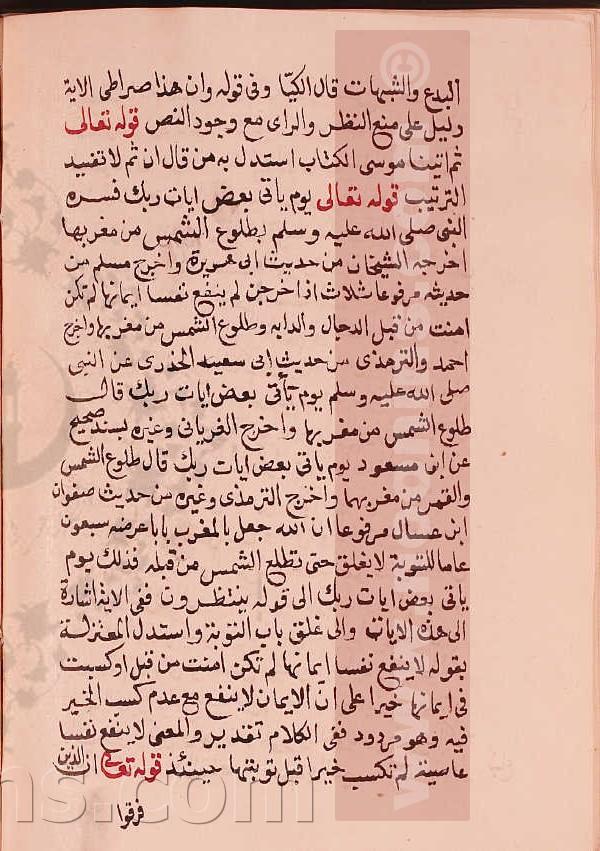 البدع والشبهات قال الكيا وفي قوله وان هذا صراطي الاية
دليل على منع النظر والراى مع وجود النص قوله تعالى
ثم اتينا موسى الكتاب استدل به من قال ان ثم لا تفيد
الترتيب قوله تعالى يوم ياتي بعض ايات ربك فسره
النبى صلى الله عليه وسلم بطلوع الشمس من مغربها
اخرجه الشيخان من حديث ابى هريرة واخرج مسلم من
حديثه مرفوعا ثلاث اذا خرجن لم ينفع نفسا ايمانها لم تكن
امنت من قبل الدجال والدابه وطلوع الشمس من مغربها واخرج
احمد والترمذى من حديث ابى سعيد الخدرى عن النبى
صلى الله عليه وسلم يوم يأتى بعض ايات ربك قال
طلوع الشمس من مغربها واخرج الفريانى وغيره بسند صحيح
عن ابن مسعود يوم ياتى بعض ايات ربك قال طلوع الشمس
والقمر من مغربهما واخرج الترمذى وغيره من حديث صفوان
ابن عسال مرفوعا ان الله جعل بالمغرب بابا عرضه سبعون
عاما للتوبة لا يغلق حتى تطلع الشمس من قبله فذلك يوم
ياتى بعض ايات ربك الى قوله ينتظرون ففى الاية اشارة
الى هذه الايات والى غلق باب التوبة واستدل المعتزلة
بقوله لا ينفع نفسا ايمانها لم تكن امنت من قبل او كسبت
فى ايمانها خيرا على ان الايمان لا ينفع مع عدم كسب الخير
فيه وهو مردود ففى الكلام تقدير والمعنى لا ينفع نفسا
عاصية لم تكسب خيرا قبل توبتها حينئذ قوله تعالى ان الذين
فرقوا